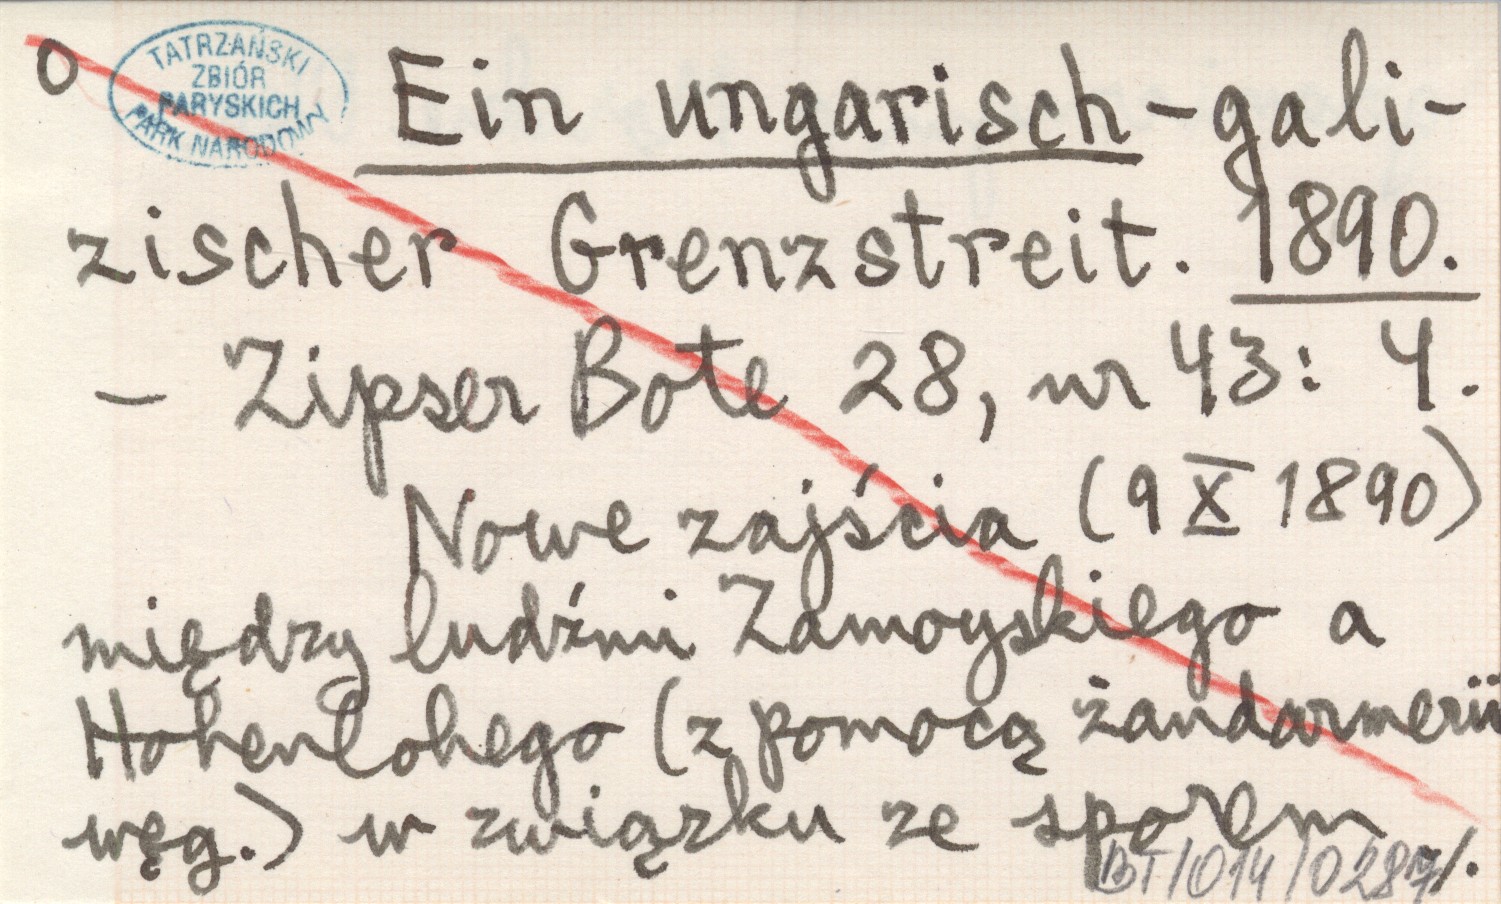 O
TATRZAŃSKI
ZBIÓR
PARYSKICH
PARK NARODOWY
Ein ungarisch-gali-
zischer Grenzstreit. 1890.
– Zipser Bote 28, nr 43: 4.
Nowe zajścia (9 X 1890)
między ludźmi Zamoyskiego a
Hohenlohego (z pomocą żandarmerii
węg.) w związku ze sporem
BT/014/0287 ./.